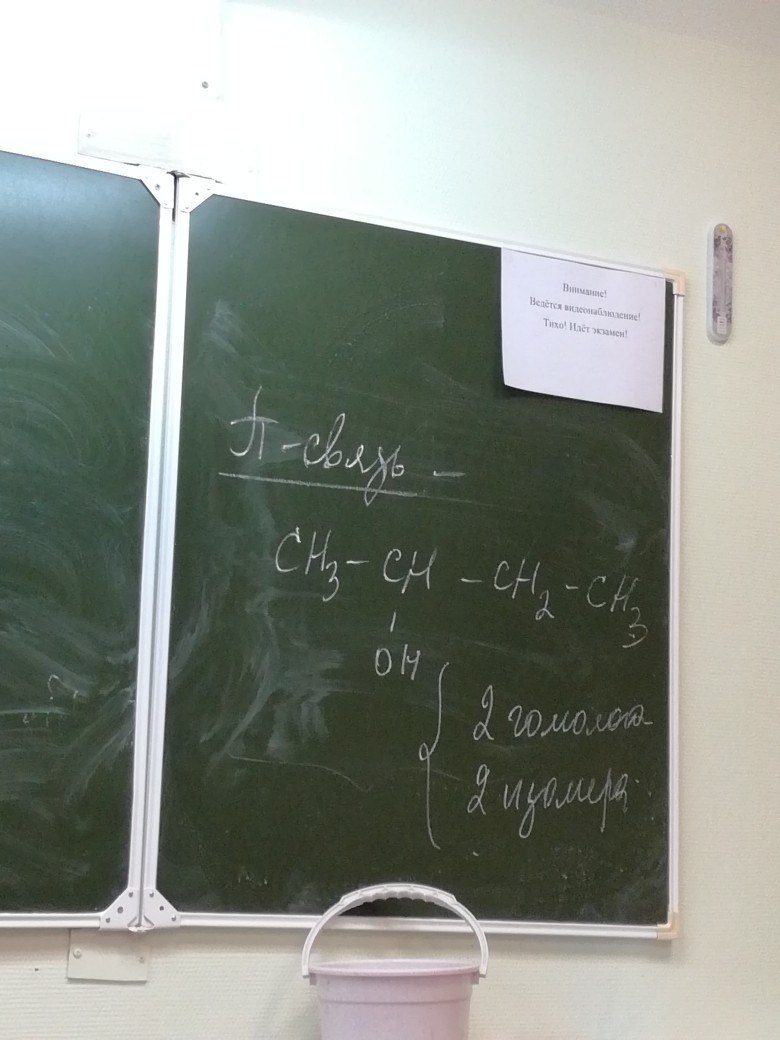 Внимание!
Ведётся видеонаблюдение!
Тихо! Идёт экзамен!
π-связь –
CH₃ – CH – CH₂ – CH₃
OH
2 гомолога
2 изомера